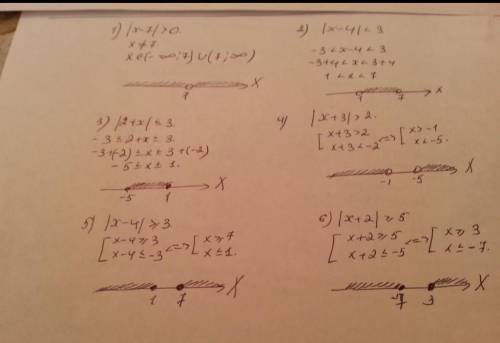 1) |x-7| > 0.
x ≠ 7
x ∈ (-∞; 7) ∪ (7; ∞)
7 X
2) |x-4| < 3
-3 < x-4 < 3
-3+4 < x < 3+4
1 < x < 7
1 7 x
3) |2+x| ≤ 3
-3 ≤ 2+x ≤ 3
-3+(-2) ≤ x ≤ 3+(-2)
-5 ≤ x ≤ 1.
-5 1 X
4) |x+3| > 2.
[ x+3 > 2 <=> [ x > -1
x+3 < -2 x < -5.
-1 -5 X
5) |x-4| ≥ 3.
[ x-4 ≥ 3 <=> [ x ≥ 7
x-4 ≤ -3 x ≤ 1.
1 7 X
6) |x+2| ≥ 5
[ x+2 ≥ 5 <=> [ x ≥ 3
x+2 ≤ -5 x ≤ -7.
-7 3 X